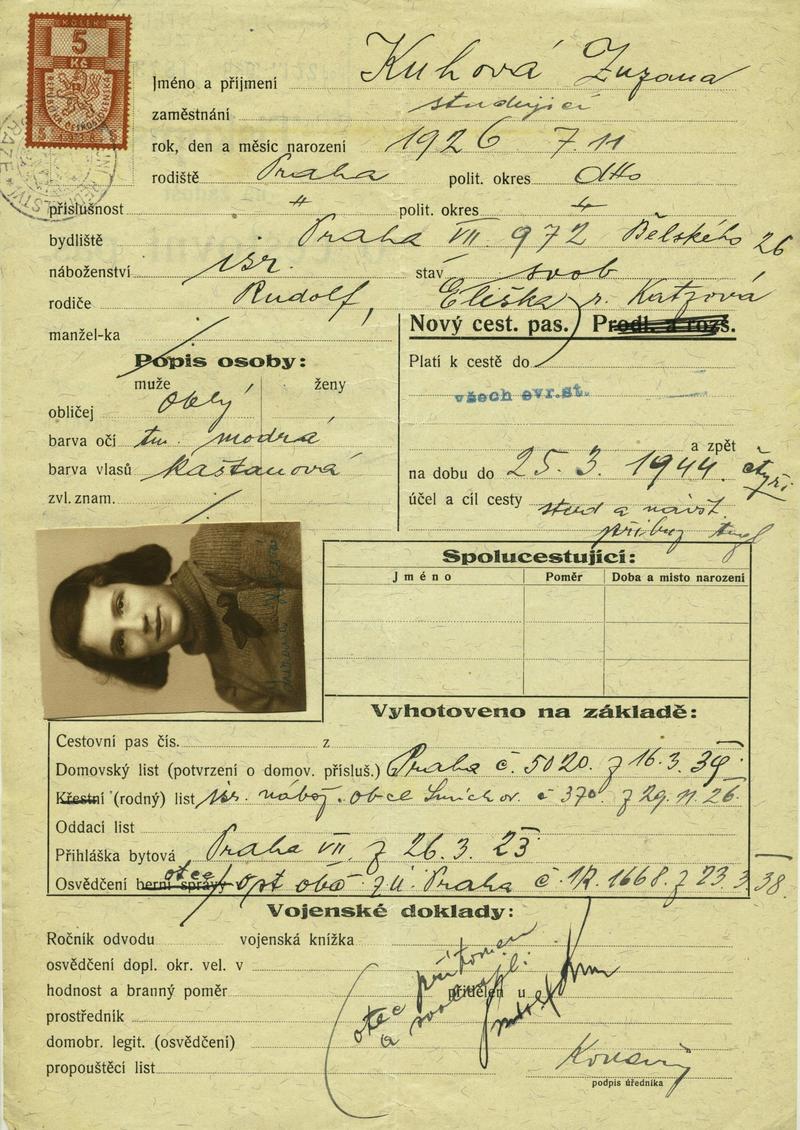 KOLEK
5
Kč
REPUBLIKA ČESKOSLOVENSKÁ
Jméno a příjmení Kuhová Zuzana
zaměstnání studující
rok, den a měsíc narození 1926 7.11
rodiště Praha polit. okres dtto
příslušnost " polit. okres "
bydliště Praha VII. 972 Bělského 26
náboženství isr. stav svob
rodiče Rudolf, Eliška r. Katzová
manžel-ka /
Nový cest. pas. Prodl. a rozš.
Popis osoby:
muže ženy
Platí k cestě do
všech evr. st.
obličej oblý
barva očí tm. modrá
a zpět
barva vlasů kaštanová
na dobu do 25. 3. 1944. čtyři
zvl. znam. /
účel a cíl cesty stud a návšt.
příbuz
Spolucestující:
Jméno Poměr Doba a místo narození
Vyhotoveno na základě:
Cestovní pas čís. z
Domovský list (potvrzení o domov. přísluš.) Praha č. 5020. z 16.3. 39.
Křestní (rodný) list isr. nábož. obce Smíchov. č 370. z 29. 11. 26.
Oddací list
Přihláška bytová Praha VII. z 26. 3. 23
Osvědčení berní správy otce opt obč z ú. Praha č. 1668. z 23. 3. 38.
Vojenské doklady:
Ročník odvodu vojenská knížka
osvědčení dopl. okr. vel. v
hodnost a branný poměr přidělen u
otec přítomen
a
prostředník
domobr. legit. (osvědčení)
propouštěcí list
podpis úředníka